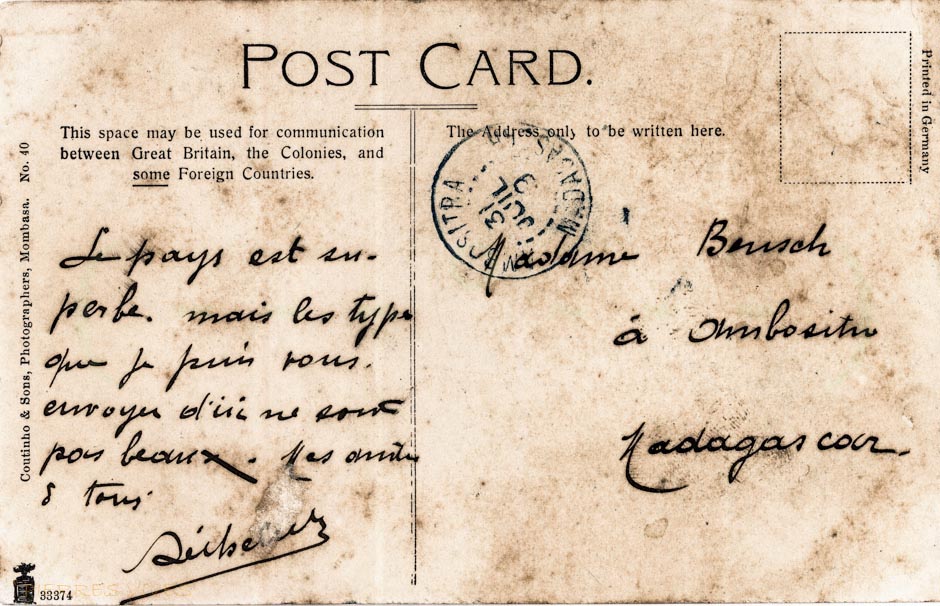 POST CARD.
This space may be used for communication
between Great Britain, the Colonies, and
some Foreign Countries.
The Address only to be written here.
Printed in Germany
Coutinho & Sons, Photographers, Mombasa. No. 40
MADAGASCAR
31 JUIL
Le pays est su-
perbe. mais les type
que je puis vous.
envoyer d'ici ne sont
pas beaux. Mes
à tous
Madame Bensch
à Ambositra
Madagascar.
33374